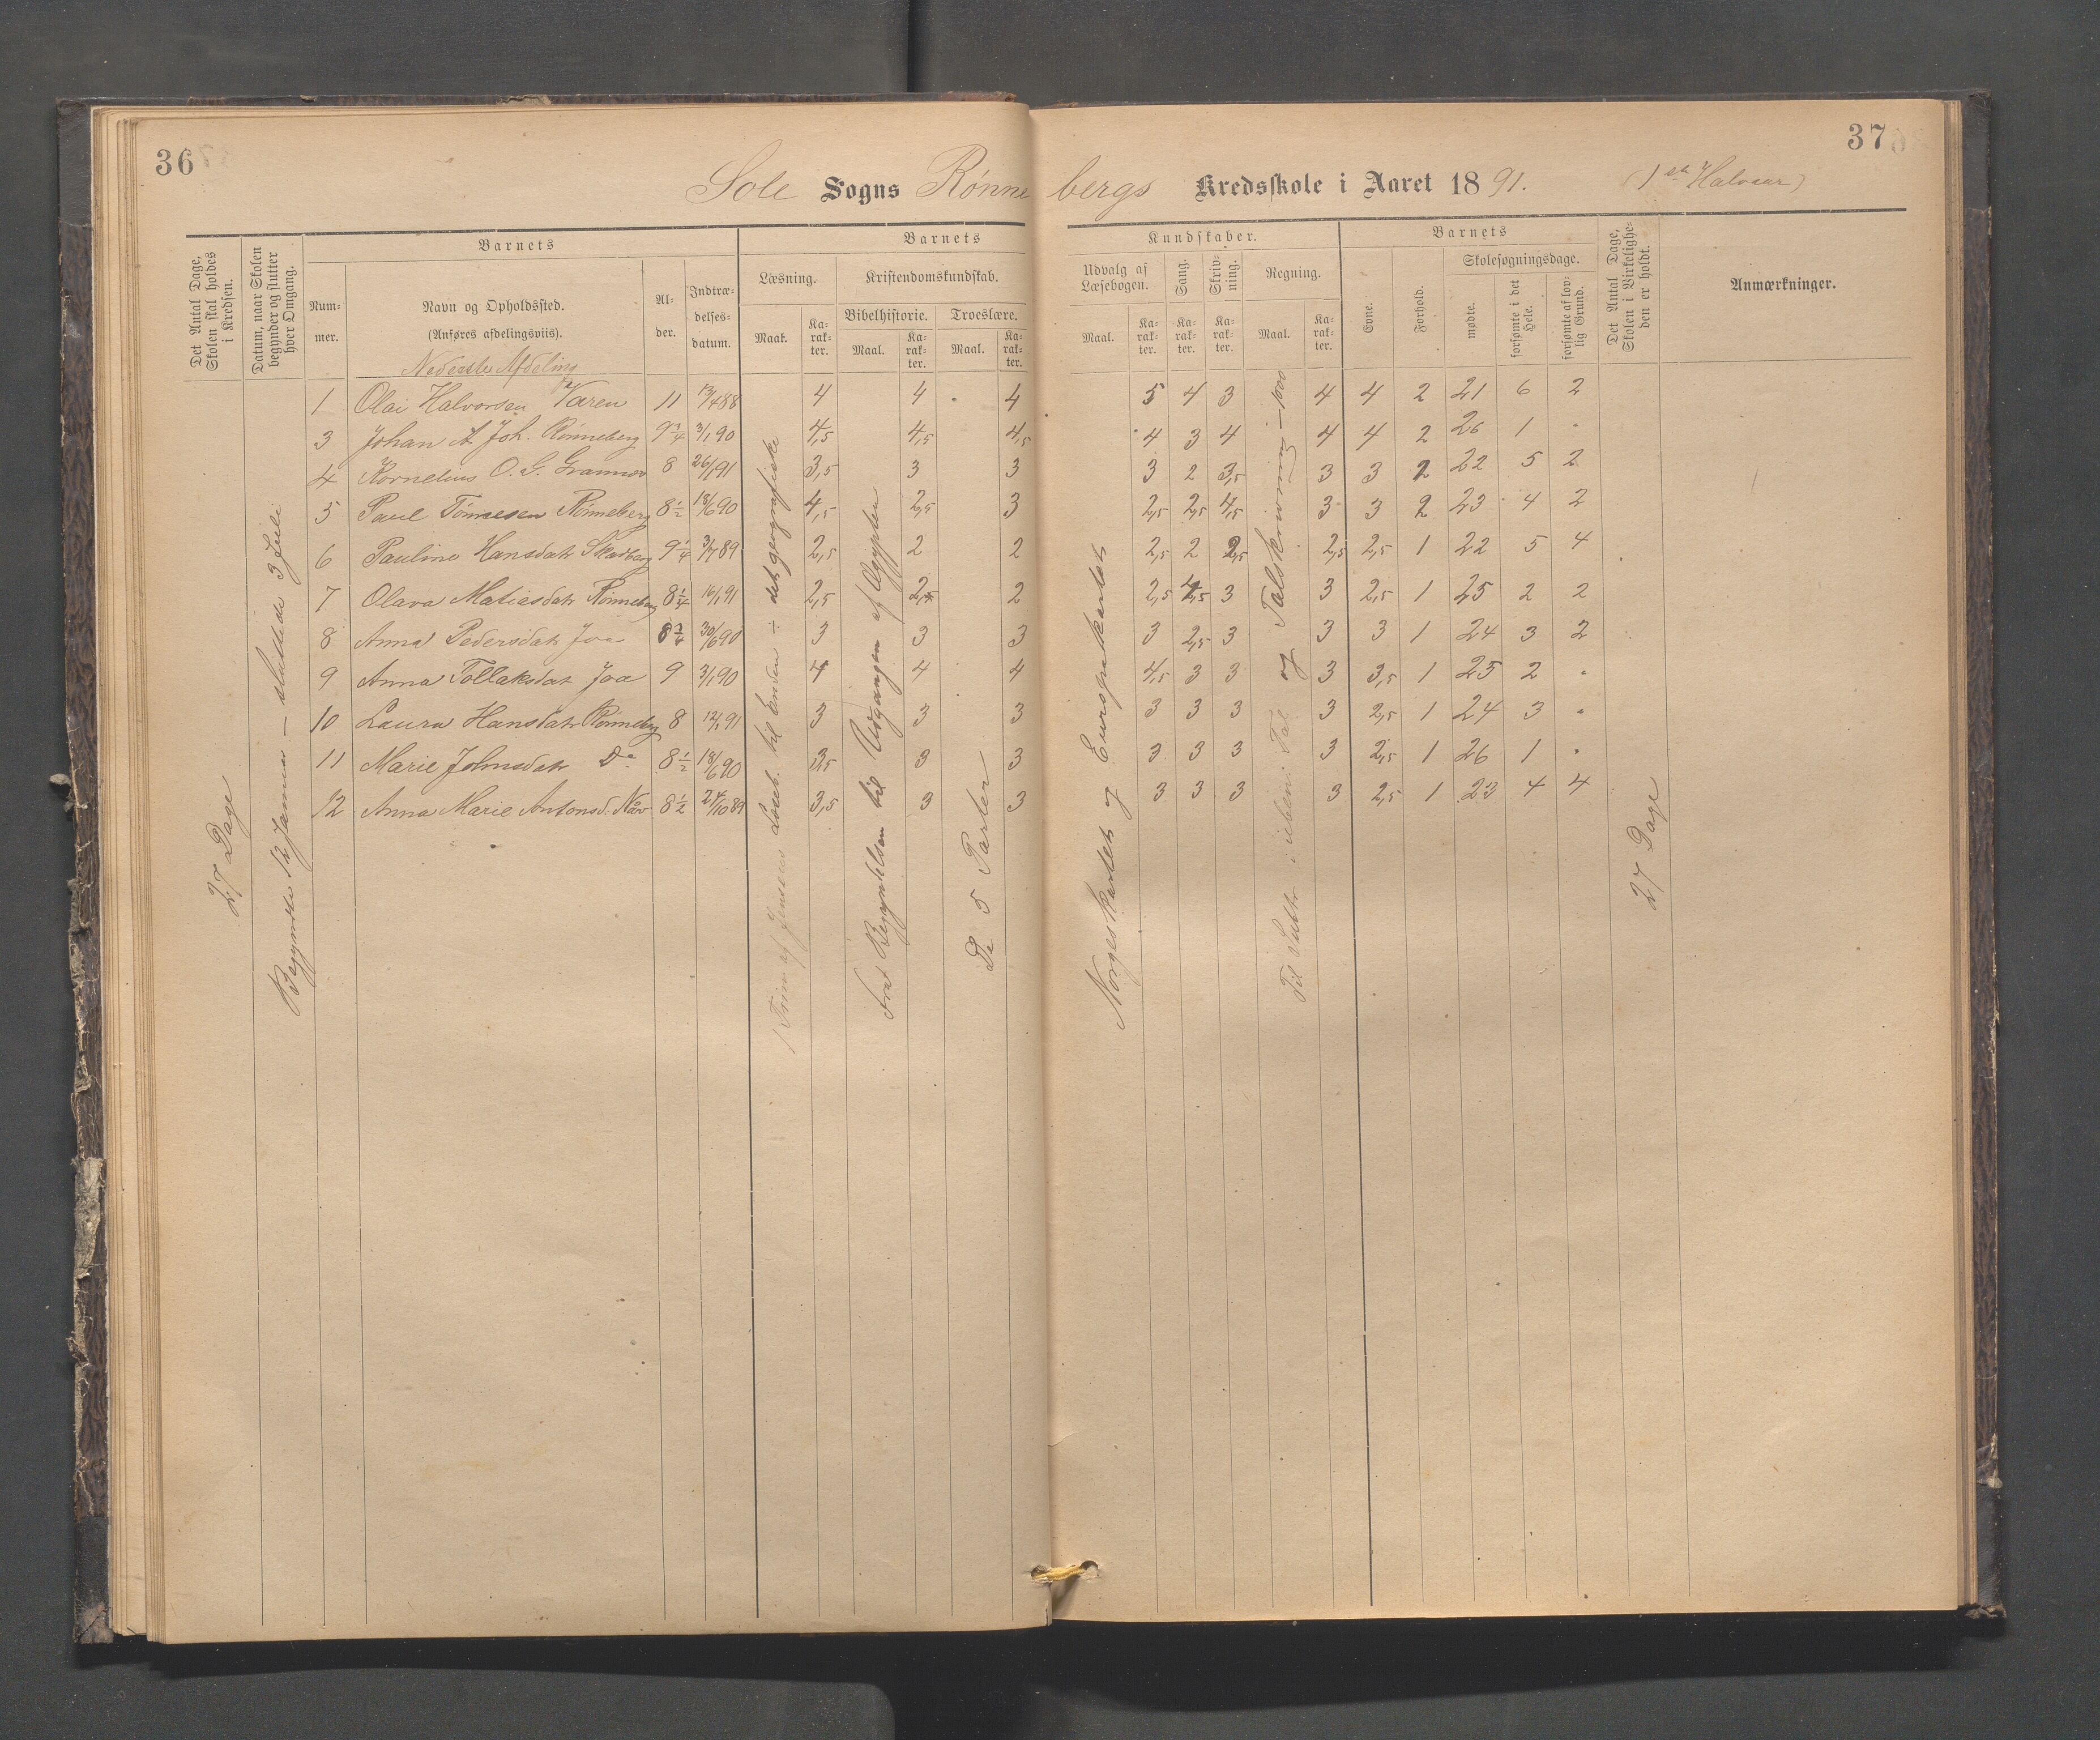 36
37
Sole Sogns Rønnebergs Kredsskole i Aaret 1891. (1ste Halvaar)
Det Antal Dage, Skolen skal holdes i Kredsen.
Datum, naar Skolen begynder og slutter hver Omgang.
Barnets
Nummer.
Navn og Opholdssted.
(Anføres afdelingsviis).
Alder.
Indtrædelses-datum.
Barnets
Læsning.
Maal.
Karakter.
Kristendomskundskab.
Bibelhistorie.
Maal.
Karakter.
Troeslære.
Maal.
Karakter.
Kundskaber.
Udvalg af Læsebogen.
Maal.
Karakter.
Sang.
Karakter.
Skrivning.
Karakter.
Regning.
Maal.
Karakter.
Barnets
Evne.
Forhold.
Skolesøgningsdage.
mødte.
forsømte i det Hele.
forsømte af lovlig Grund.
Det Antal Dage, Skolen i Virkeligheden er holdt.
Anmærkninger.
Nederste Afdeling
1 Olai Halvorsen 11 13/4 88 4 4 4 5 4 3 4 4 2 21 6 2
3 Johan A. Joh. Rønneberg 9 3/4 3/1 90 4,5 4,5 4,5 4 3 4 4 4 2 26 1 "
4 Kornelius O. G. 8 26/1 91 3,5 3 3 3 2 3,5 3 3 2 22 5 2
5 Paul Tønnesen Rønneberg 8 1/2 18/6 90 4,5 2,5 3 2,5 2,5 4,5 3 3 2 23 4 2
6 Pauline Hansdatr Skadberg 9 1/4 3/7 89 2,5 2 2 2,5 2 2,5 2,5 2,5 1 22 5 4
7 Olava Matiasdatr Rønneberg 8 1/4 16/1 91 2,5 2,5 2 2,5 2,5 3 3 2,5 1 25 2 2
8 Anna Pedersdatr Joa 8 3/4 30/6 90 3 3 3 3 2,5 3 3 3 1 24 3 2
9 Anna Tollaksdat Joa 9 3/1 90 4 4 4 4,5 3 3 3 3,5 1 25 2 "
10 Laura Hansdatr Rønneberg 8 12/1 91 3 3 3 3 3 3 3 2,5 1 24 3 "
11 Marie Johnsdatr Do 8 1/2 18/6 90 3,5 3 3 3 3 3 3 2,5 1 26 1 "
12 Anna Marie Antonsd. 8 1/2 24/10 89 3,5 3 3 3 3 3 3 2,5 1 23 4 4
27 Dage
Begyndte 12 Januar – sluttede 3 Juli
1 Trin af Jensens Læseb. til Enden ÷ det geografiske
fra Begyndelsen til Udgangen af Ægypten
De 5 Parter
Norgeskartet og Europakartet
Til Subtr. i ubeni. Tal og Talskrivning – 1000
27 Dage